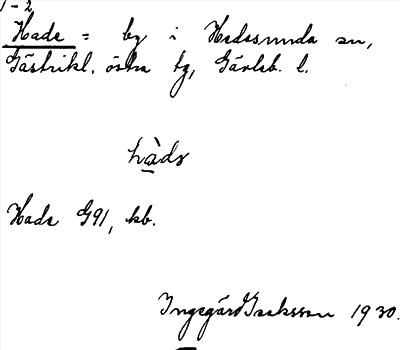 1-2
Hade = by i Hedesunda sn,
Gästrikl. östra tg, Gävleb. l.
hàdɘ
Hade G91, kb.
Ingegärd Isaksson 1930.